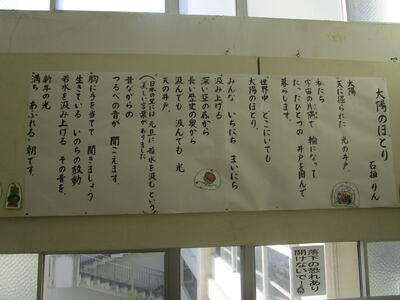 太陽のほとり
石垣りん
太陽
天に掘られた 光の井戸。
私たち
宇宙の片隅で 輪になって
たったひとつの 井戸を囲んで
暮らします。
世界中 どこにいても
太陽のほとり。
みんな いちにち まいにち
汲み上げる
深い空の底から
長い歴史の奥から
汲んでも 汲んでも 光
天の井戸。
(日本の里には 元旦に 若水を汲む という
美しい言葉が ありました)
昔ながらの
つるべの音が 聞こえます。
胸に手を当てて 聞きましょう
生きている いのちの鼓動
若水を汲み上げる その音を。
新年の光
満ち あふれる 朝です。
落下の恐れあり
開けないで!